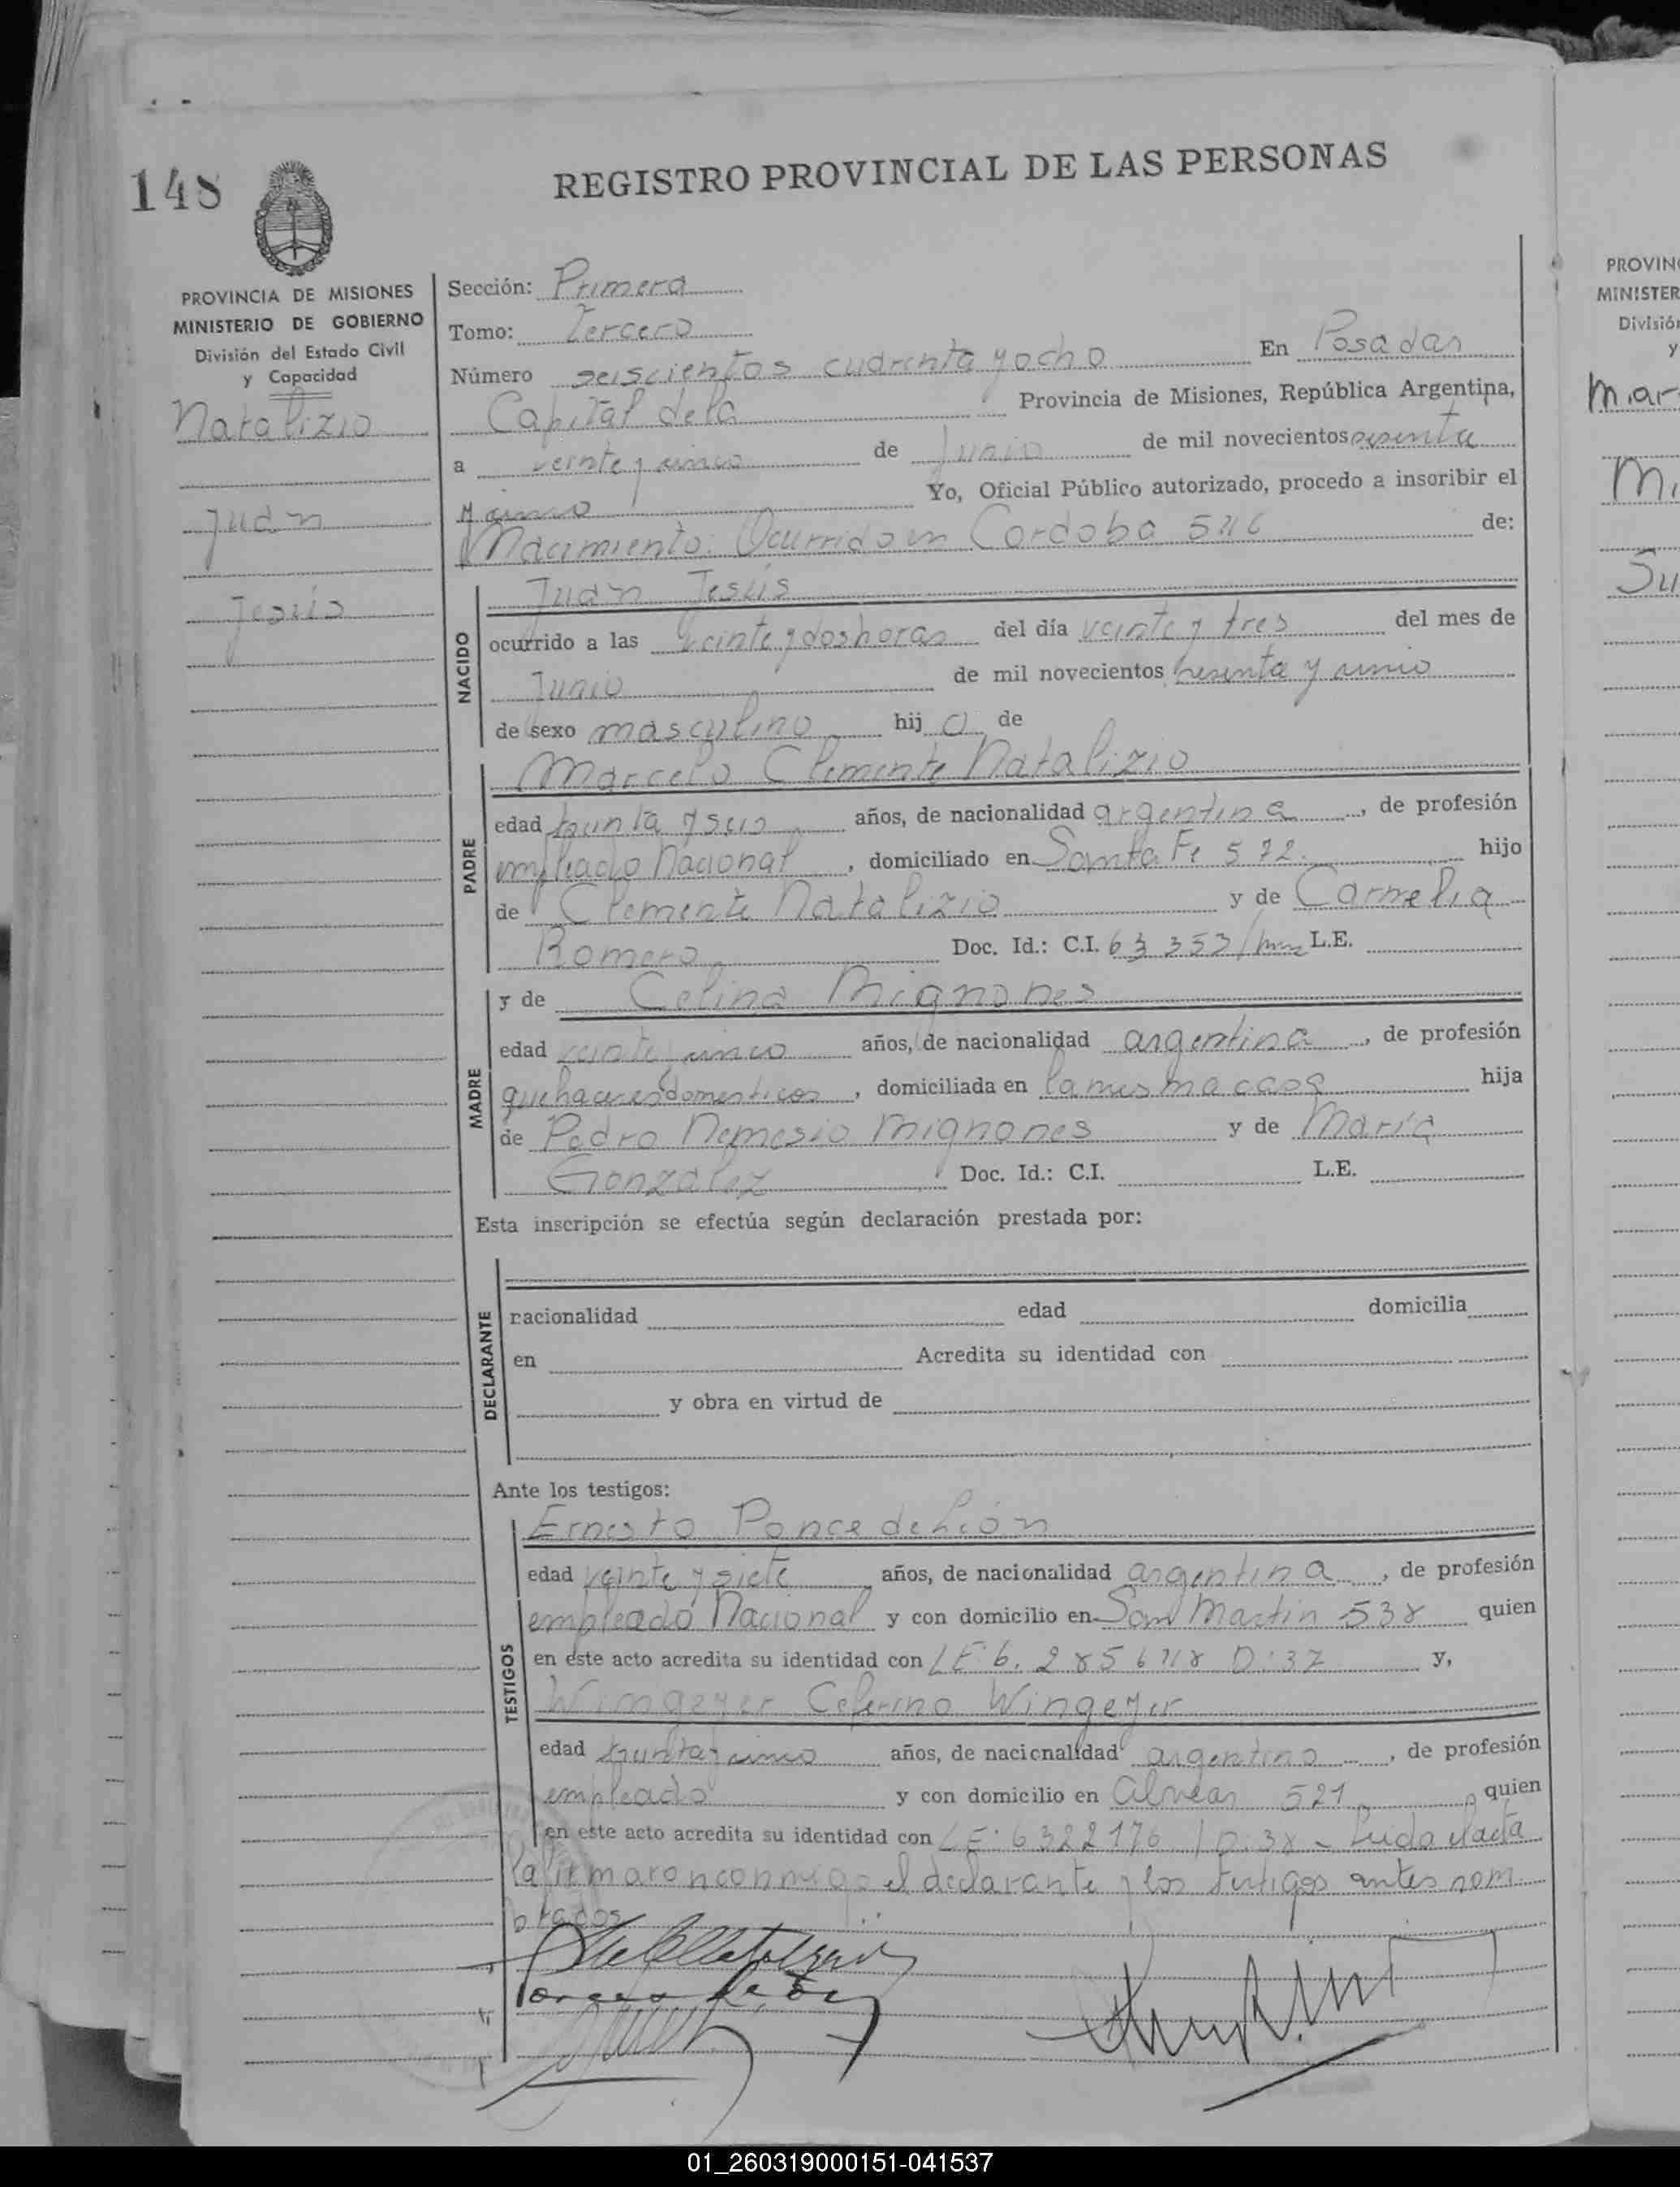 148
REGISTRO PROVINCIAL DE LAS PERSONAS
PROVINCIA DE MISIONES
MINISTERIO DE GOBIERNO
División del Estado Civil
y Capacidad
Natalizio
Juan
Jesús
Sección: Primera
Tomo: Tercero
Número seiscientos cuarenta y ocho En Posadas
Capital de la Provincia de Misiones, República Argentina,
a veinte y cinco de Junio de mil novecientos sesenta
y cinco Yo, Oficial Público autorizado, procedo a insoribir el
Nacimiento: Ocurrido en Cordoba de:
NACIDO
Juan Jesús
ocurrido a las veinte y dos horas del día veinte y tres del mes de
Junio de mil novecientos sesenta y cinco
de sexo masculino hij o de
PADRE
Marcelo Clemente Natalizio
edad treinta y seis años, de nacionalidad argentina, de profesión
empleado Nacional, domiciliado en Santa Fe 572. hijo
de Clemente Natalizio y de Carmelia
Romero Doc. Id.: C.I. 63 353/ L.E.
MADRE
y de Celina Mignones
edad veinte y cinco años, de nacionalidad argentina, de profesión
quehaceres domesticos, domiciliada en la misma casa hija
de Pedro Nemesio Mignones y de María
Gonzalez Doc. Id.: C.I. L.E.
Esta inscripción se efectúa según declaración prestada por:
DECLARANTE
racionalidad edad domicilia
en Acredita su identidad con
y obra en virtud de
Ante los testigos:
TESTIGOS
Ernesto Ponce de León
edad veinte y siete años, de nacionalidad argentina, de profesión
empleado Nacional y con domicilio en San Martin 538 quien
en este acto acredita su identidad con LE: D:37 y,
Wimgeyer Ceferino Wingeyer
edad treinta y cinco años, de nacicnalidad argentino, de profesión
empleado y con domicilio en Alvear 521 quien
en este acto acredita su identidad con LE: 6322176 / D:38 - Leida el acta
la firmaron conmigo el declarante y los testigos antes nom
brados
PROVIN
MINISTER
División
y
Mar
Mi
Su
01_260319000151-041537